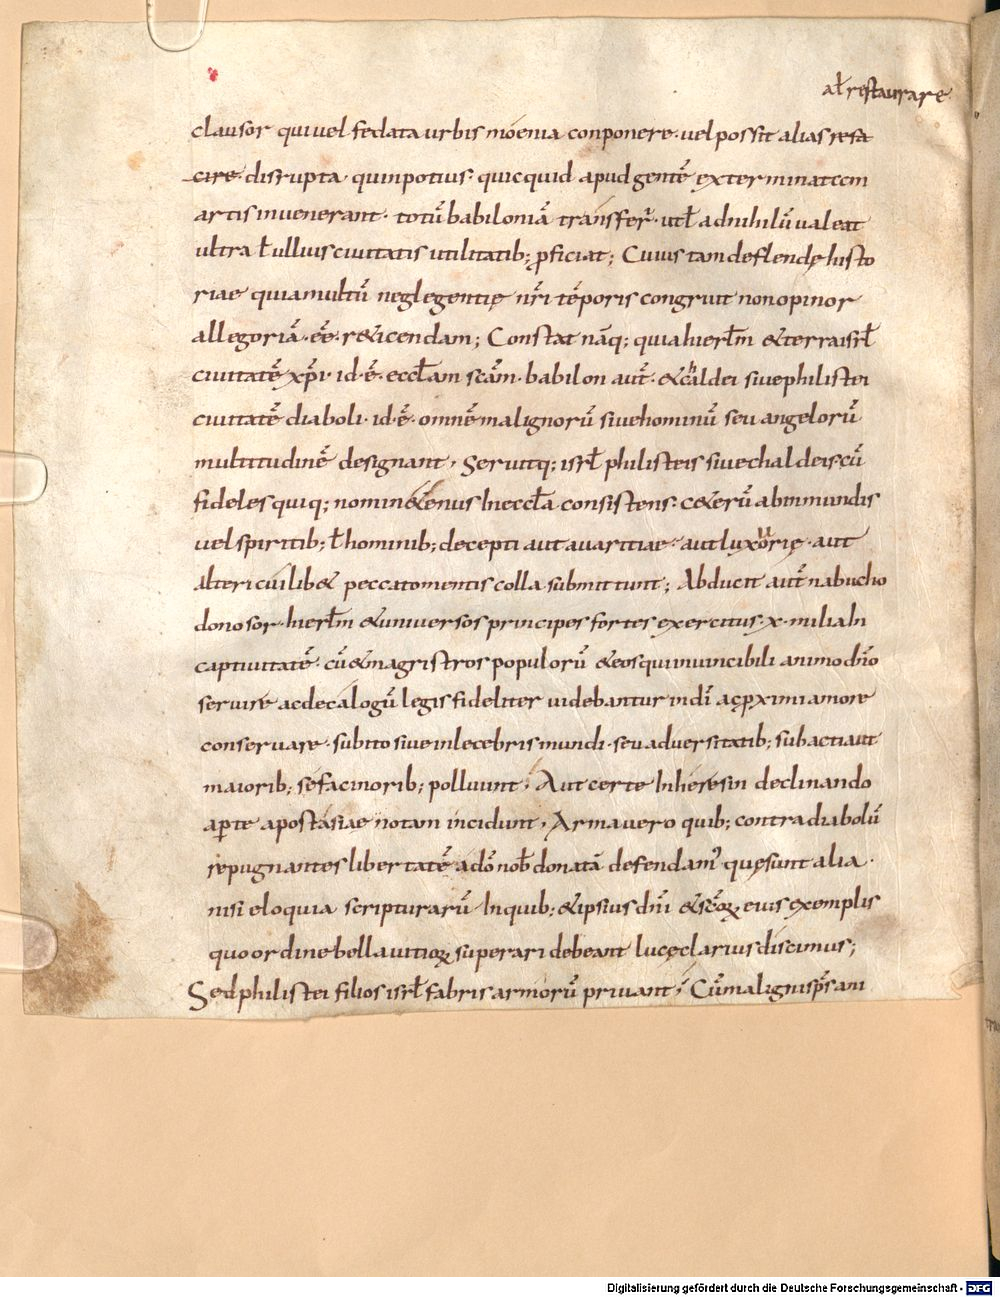 al̄ restaurare
clausor qui uel fedata urbis moenia conponere· uel possit alias resa
cire· disrupta· quin potius· quicquid apud gentē exterminatam
artis inuenerant· totū babiloniā transfer̄· ut l̄ ad nihilū ualeat
ultra l̄ ullius ciuitatis utilitatib; ꝓficiat; Cuius tam deflendę histo
riae quia multū neglegentię nr̄i tēporis congruit non opinor
allegoriā· eē· reicendam; Constat nāq; quia hierlm̄ & terra isrl̄
ciuitatē xp̄i· id· ē· eccl̄am scām̄· babilon aut̄· & chaldei siue philistei
ciuitatē diaboli· id· ē· omnē malignorū siue hominū seu angelorū
multitudinē designant· Seruitq; isrl̄ philisteis siue chaldeis· cū
fideles quiq; nomine tenus In eccl̄a consistens· ceterū ab inmundis
uel spiritib; l̄ hominib; decepti aut auaritiae· aut luxurię· aut
alteri cuilib& peccato mentis colla submittunt; Abducit aut̄ nabucho
donosor· hierlm̄ & uniuersos principes fortes exercitus· x· milia In
captiuitatē· cū & magistros populorū & eos qui inuincibili animo dn̄o
seruire ac decalogū legis fideliter uidebantur in dī ac ꝓximi amore
conseruare· subito siue inlecebris mundi· seu aduersitatib; subacti aut
maiorib; se facinorib; polluunt· Aut certe In heresin declinando
aꝑte apostasiae notam incidunt· Arma uero quib; contra diabolū
repugnantes libertatē a dō nob̄ donatā defendam' quę sunt alia·
nisi eloquia scripturarū In quib; & ipsius dn̄i & sc̄oꝝ eius exemplis
quo ordine bella uitioꝝ superari debeant luce clarius discimus;
Sed philistei filios isrl̄ fabris armorū priuant· Cū maligni sp̄s ani
Digitalisierung gefördert durch die Deutsche Forschungsgemeinschaft - DFG